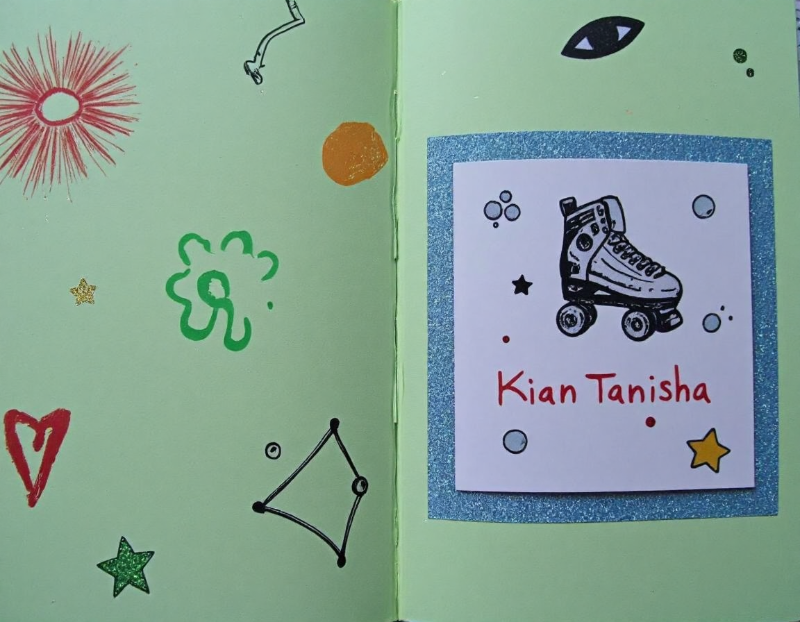 Kian Tanisha